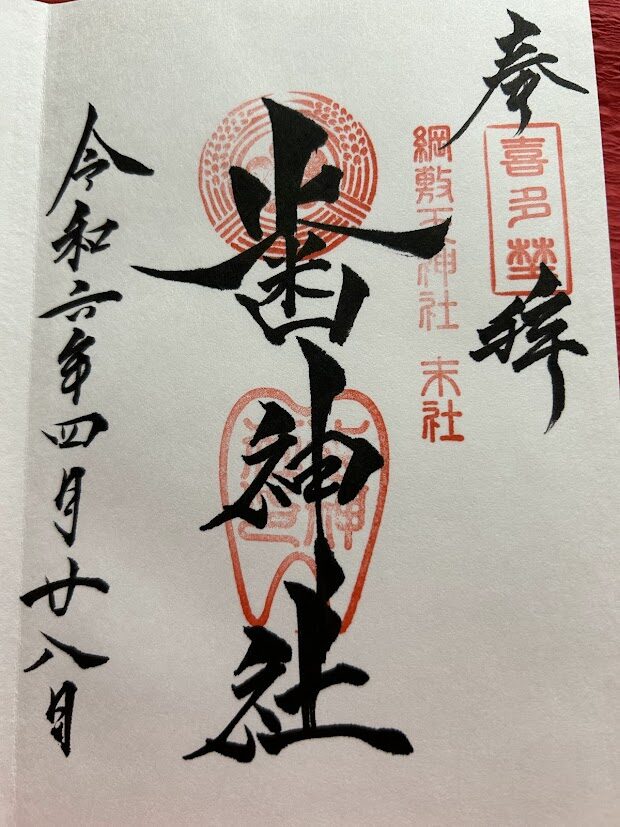 奉拝
喜多埜
綱敷天神社 末社
歯神社
令和六年四月廿八日